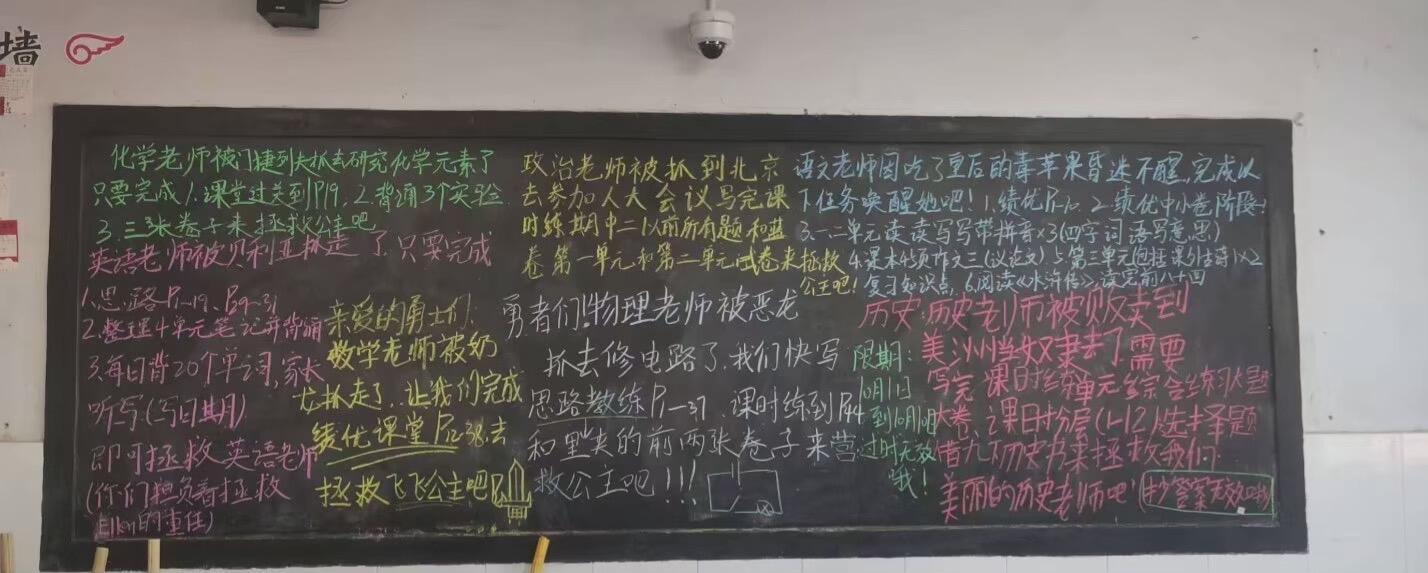 墙
化学老师被门捷列夫抓去研究化学元素了
只要完成1.课堂过关到P19 2.背诵3个实验
3.三张卷子来拯救公主吧
英语老师被贝利亚抓走了只要完成
1.思路P1-19、P29-31
2.整理4单元笔记并背诵
3.每日背20个单词,家长
听写(写日期)
即可拯救英语老师
(你们担负着拯救
的重任)
亲爱的勇士们:
数学老师被奶
龙抓走了,让我们完成
绩优课堂P12-38,去
拯救飞飞公主吧
政治老师被抓到北京
去参加人大会议写完课
时练期中二以前所有题和蓝
卷第一单元和第二单元试卷来拯救
公主吧!
勇者们!物理老师被恶龙
抓去修电路了,我们快写
思路教练P1-37 课时练到P44
和里夹的前两张卷子来营
救公主吧!!!
语文老师因吃了皇后的毒苹果昏迷不醒,完成以
下任务唤醒她吧! 1.绩优 2.绩优中小卷阶段
3.一二单元读读写写带拼音×3(四字词语写意思)
4.课本45页作文三(议论文) 5.第三单元包括课外古诗1×2
复习知识点, 6.阅读《水浒传》,读完前八十四
历史:历史老师被贩卖到
美洲当奴隶去了需要
写完课时练单元综合练习大题
大卷,课时分层(1-12)选择题
借九下历史书来拯救我们
美丽的历史老师吧
抄答案无效哦
限期:
10月1日
到10月10日
过时无效
哦!